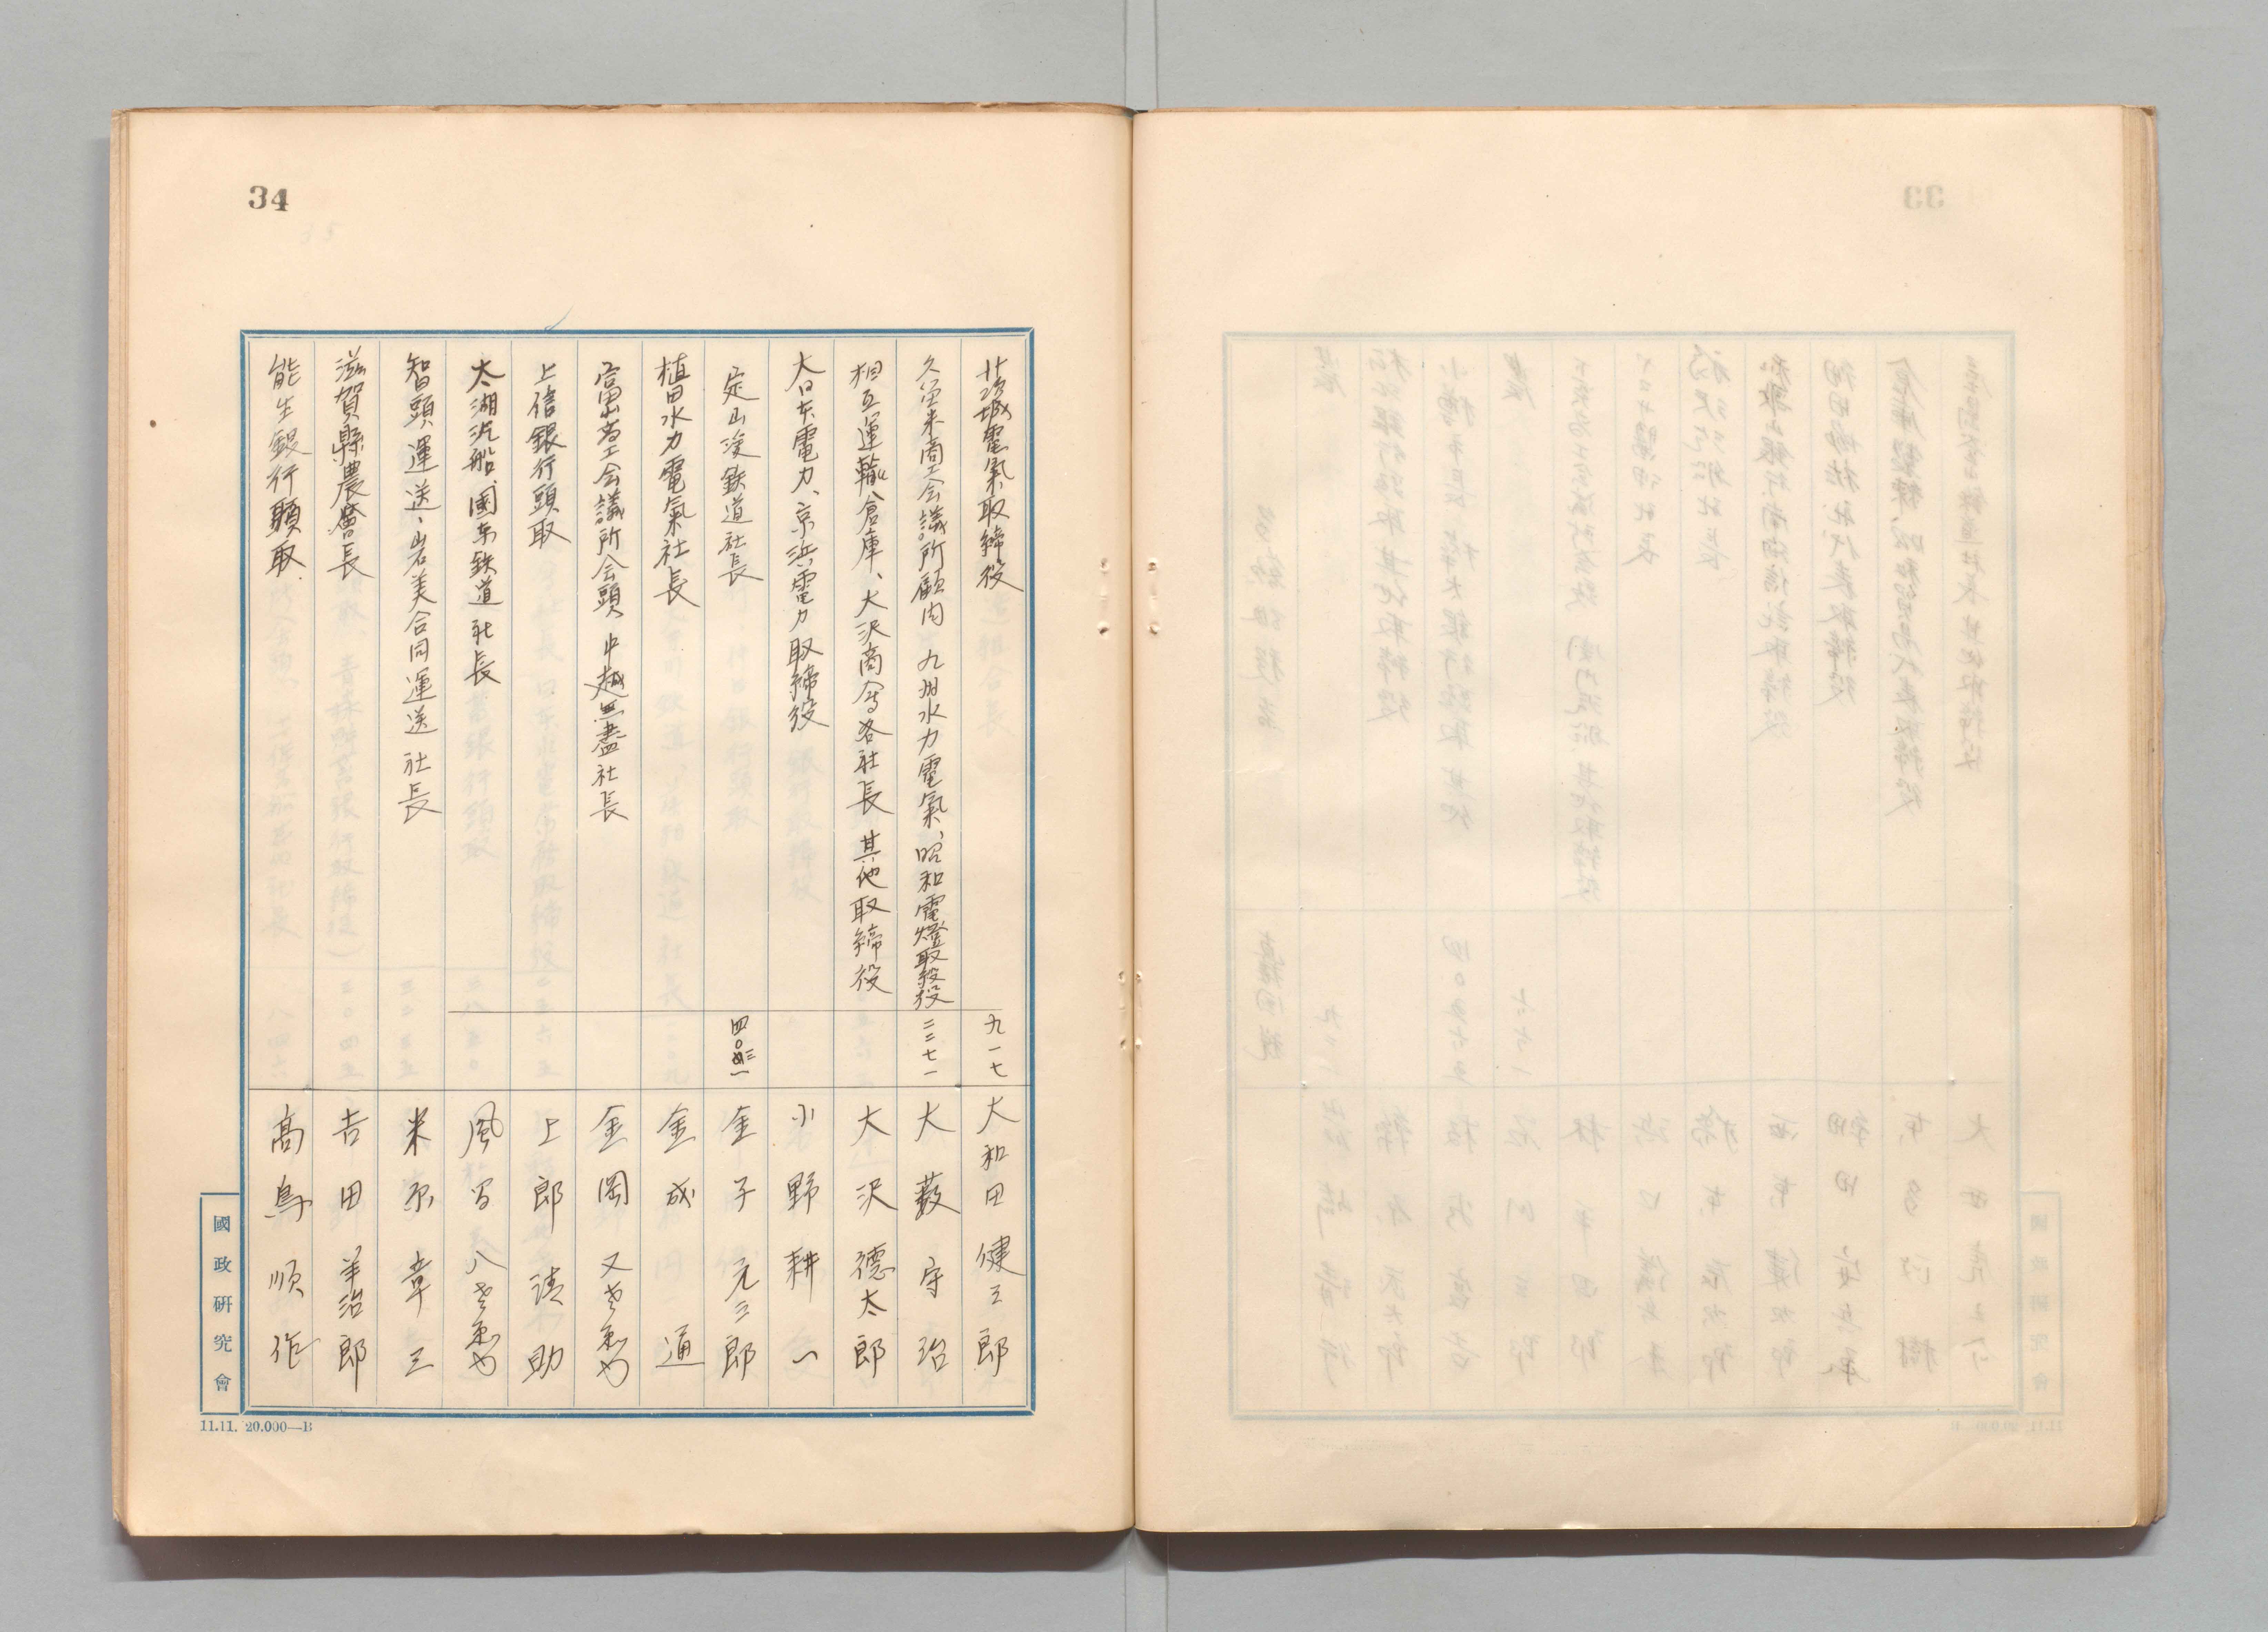 34
茨城電氣取締役 九一七 大和田健三郎
久留米商工会議所顧問 九州水力電氣、昭和電燈取締役 二二七一 大藪守治
相互運輸倉庫、大沢商会各社長 其他取締役 大沢德太郎
大日本電力、京浜電力取締役 小野耕一
定山渓鉄道社長 金子元三郎
植田水力電氣社長 金成通
富山商工会議所会頭 中越無盡社長 金岡又左衛門
上信銀行頭取 上郎清助
太湖汽船、国東鉄道社長 風間八左衛門
智頭運送、岩美合同運送社長 米原章三
滋賀縣農會長 吉田羊治郎
能生銀行頭取 高鳥順作
國政研究會
11.11. 20.000—B